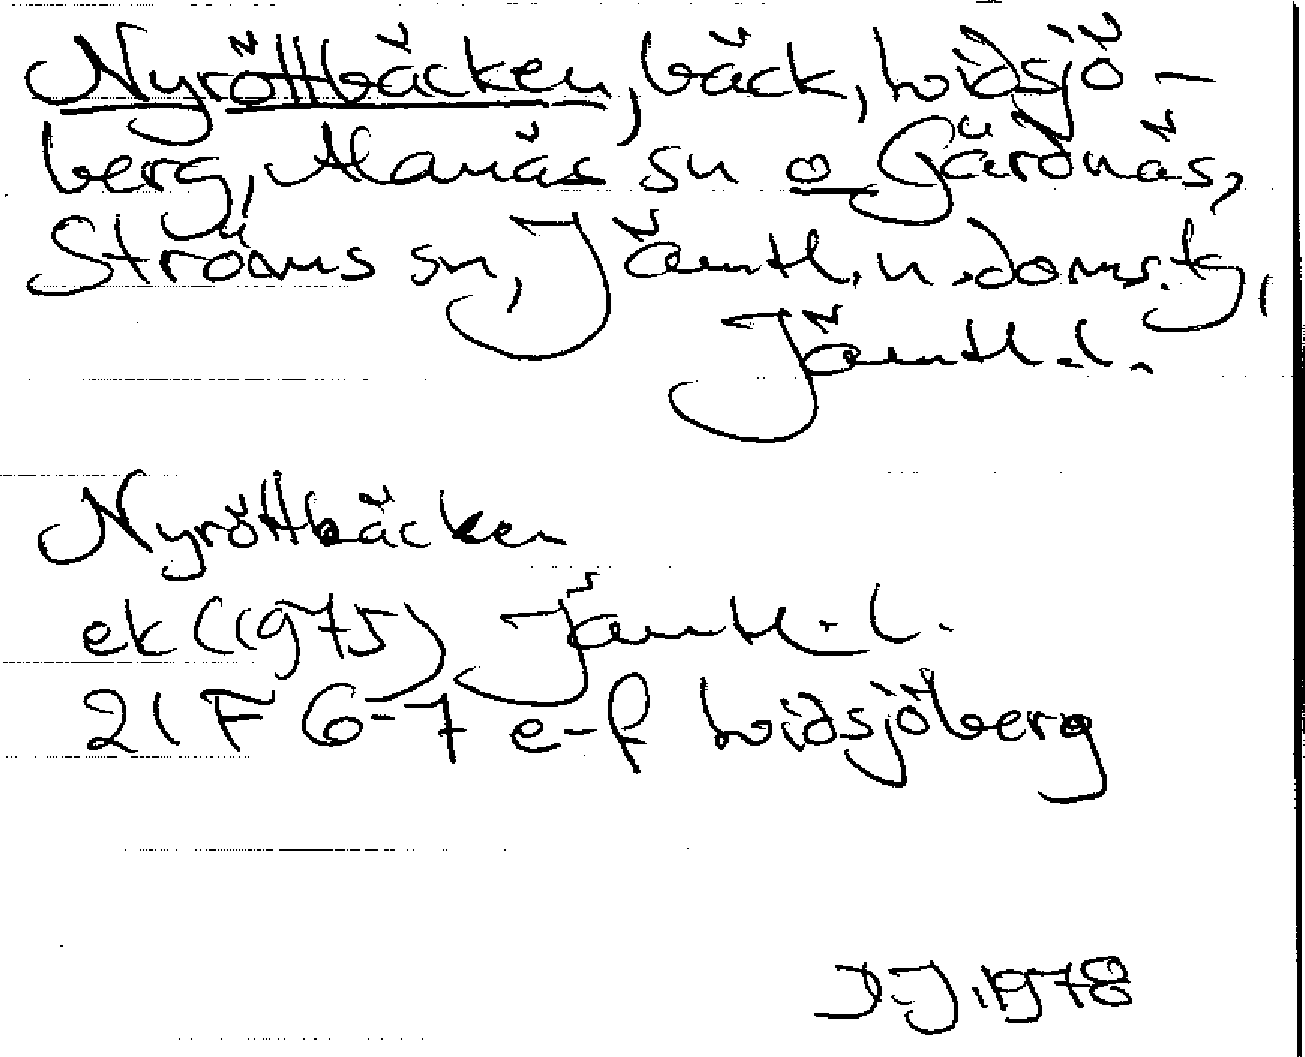 Nyröttbäcken, bäck, Vidsjö-
berg, Alanäs sn o Gärdnäs,
Ströms sn, Jämtl. n. doms.tg,
Jämtl. l.
Nyröttbäcken
ek (1975) Jämtl. l.
21 F 6-7 e-f Vidsjöberg
D.J. 1978